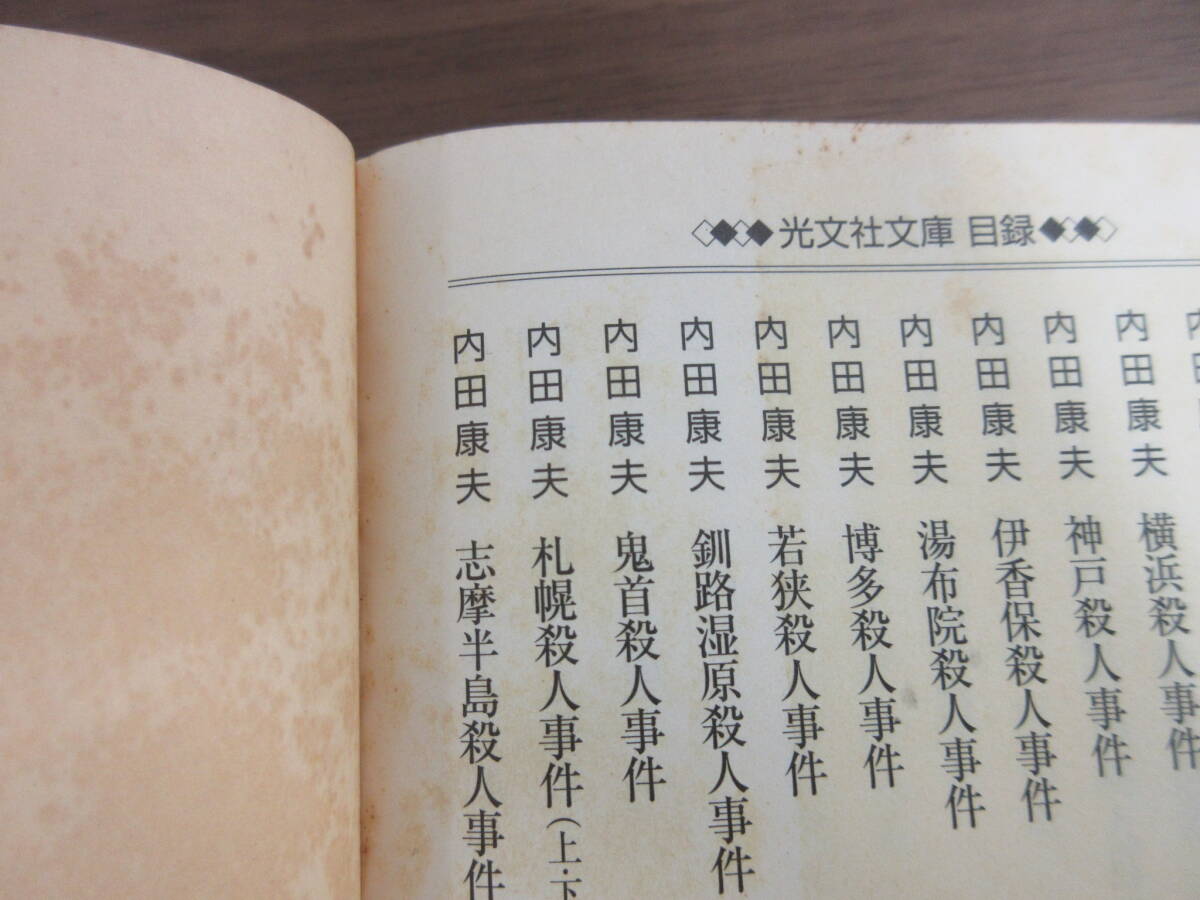 光文社文庫 目録
内田康夫 横浜殺人事件
内田康夫 神戸殺人事件
内田康夫 伊香保殺人事件
内田康夫 湯布院殺人事件
内田康夫 博多殺人事件
内田康夫 若狭殺人事件
内田康夫 釧路湿原殺人事件
内田康夫 鬼首殺人事件
内田康夫 札幌殺人事件(上・下
内田康夫 志摩半島殺人事件